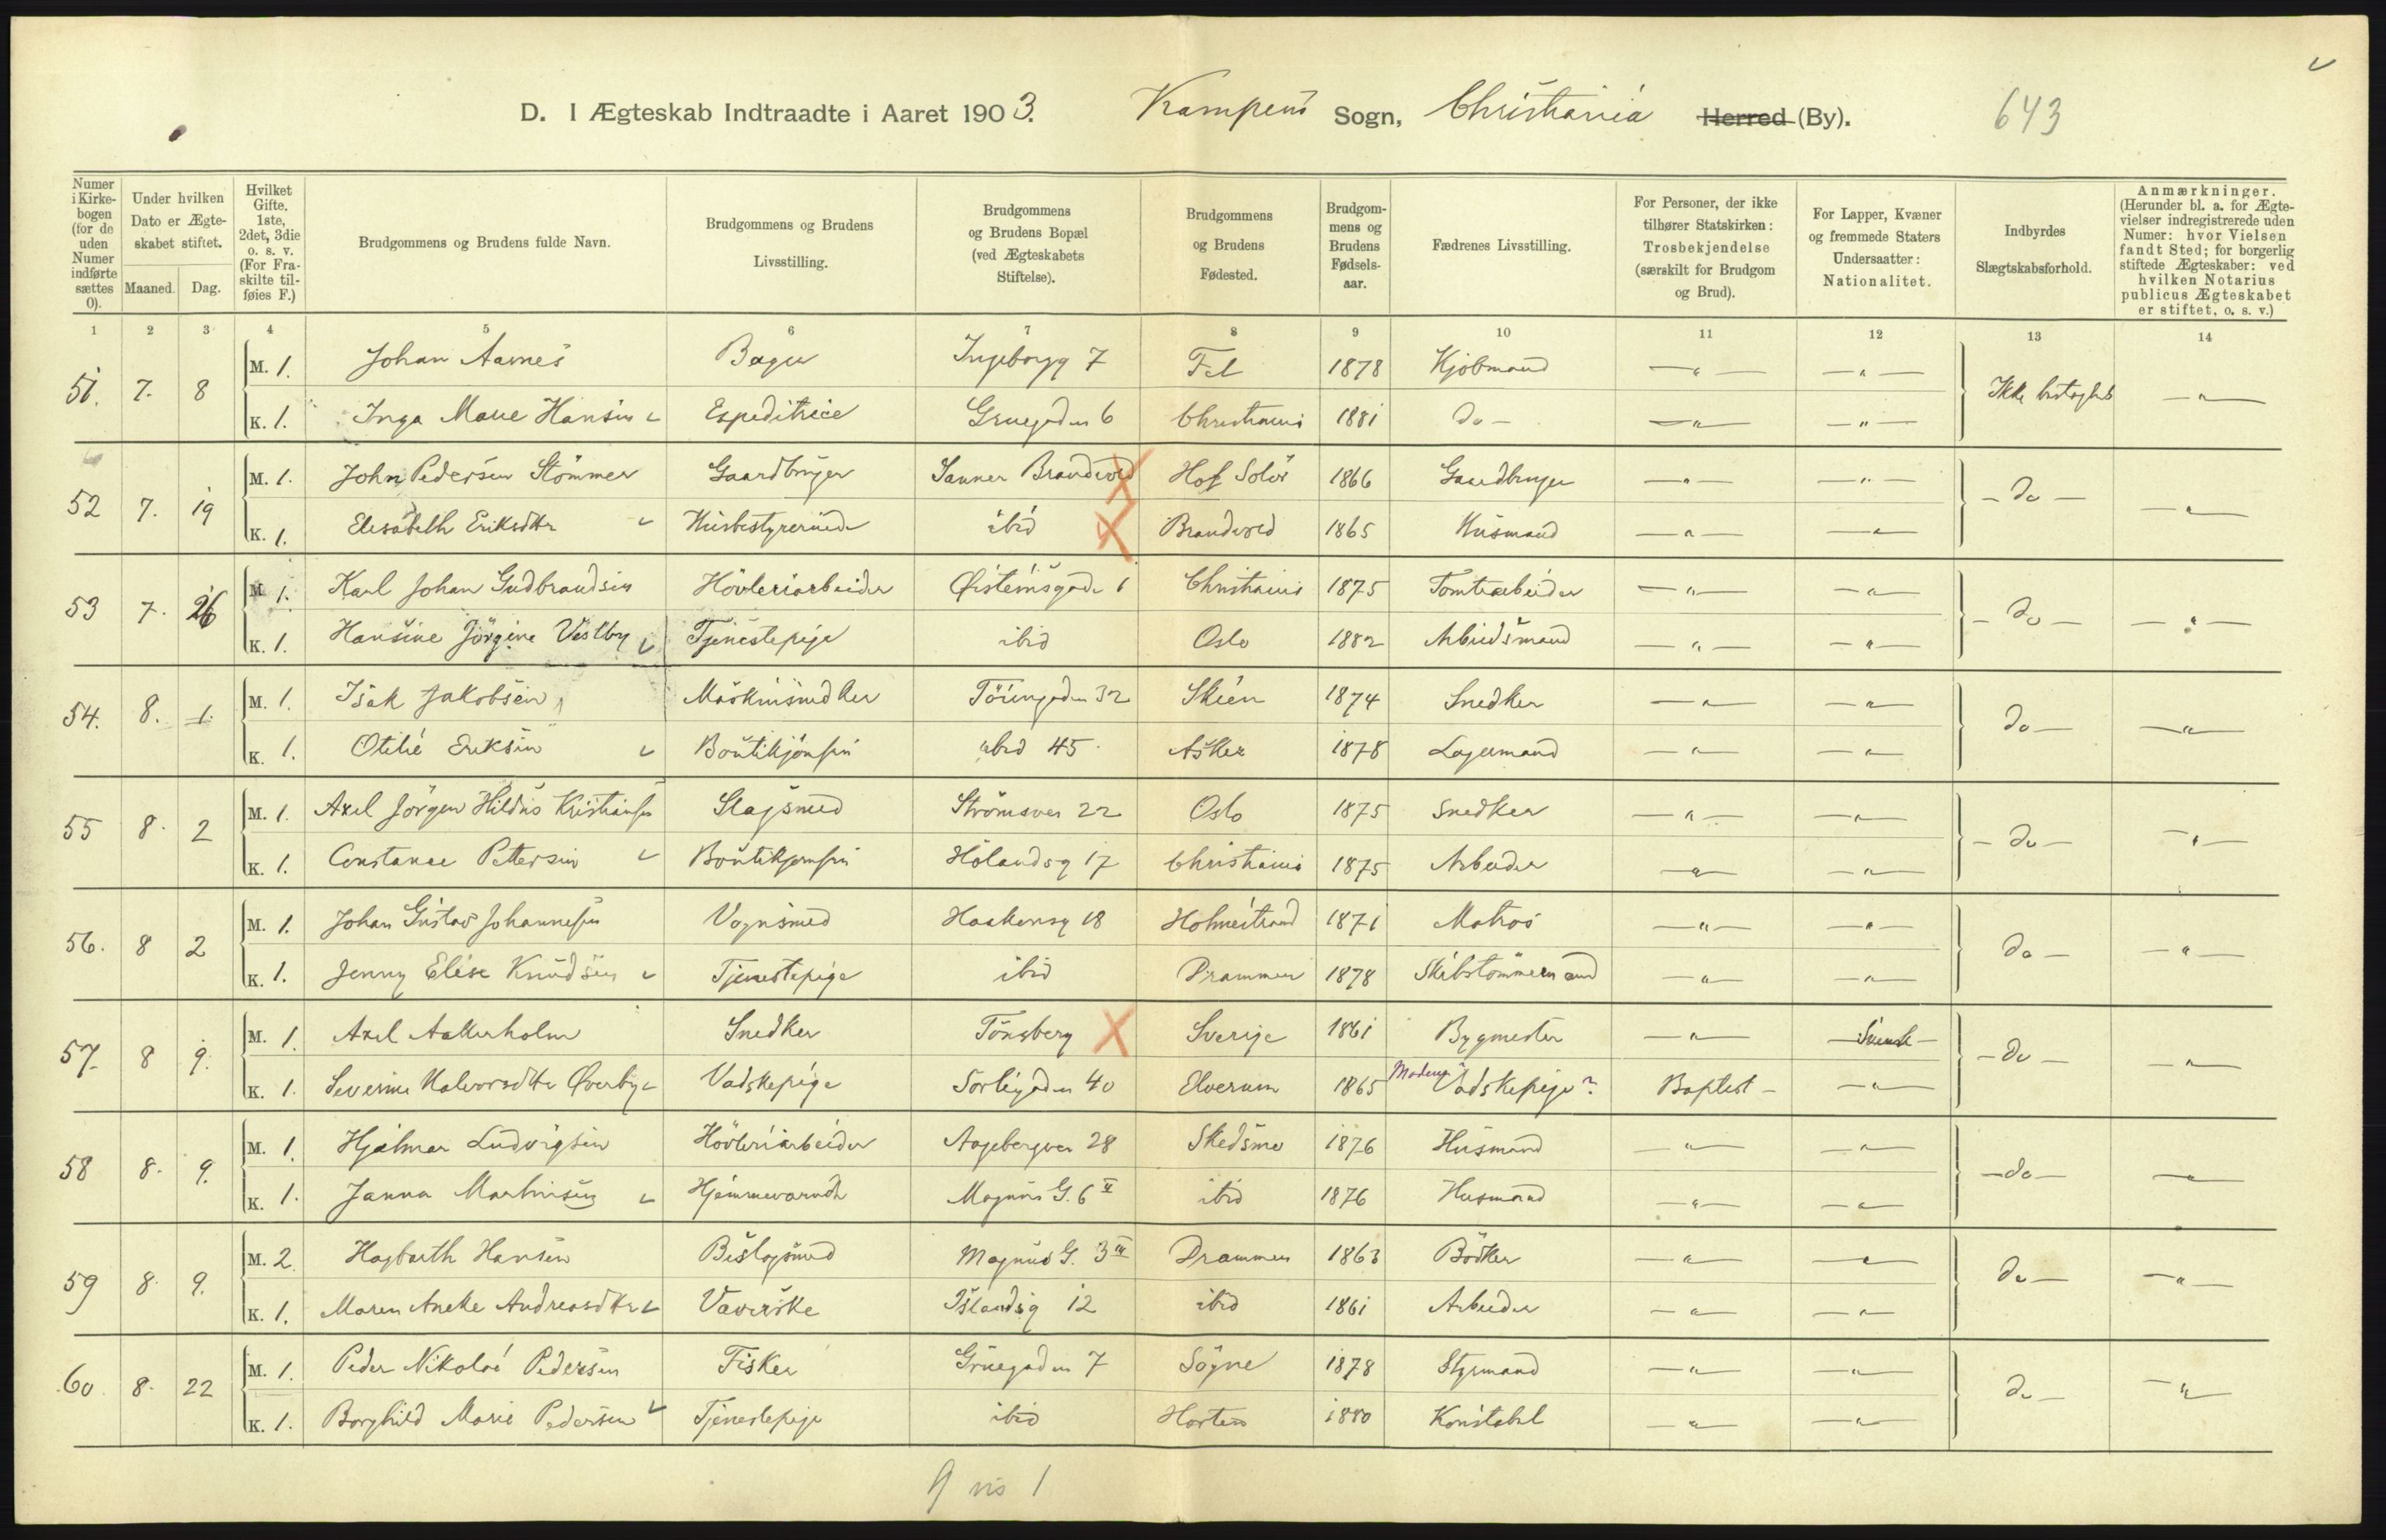 D. I Ægteskab Indtraadte i Aaret 1903. Kampens Sogn, Christiania Herred (By). 643
Numer i Kirkebogen (for de uden Numer indførte sættes 0). | Under hvilken Dato er Ægteskabet stiftet. Maaned. Dag. | Hvilket Gifte. 1ste, 2det, 3die o. s. v. (For Fraskilte tilføies F.) | Brudgommens og Brudens fulde Navn. | Brudgommens og Brudens Livsstilling. | Brudgommens og Brudens Bopæl (ved Ægteskabets Stiftelse). | Brudgommens og Brudens Fødested. | Brudgommens og Brudens Fødselsaar. | Fædrenes Livsstilling. | For Personer, der ikke tilhører Statskirken: Trosbekjendelse (særskilt for Brudgom og Brud). | For Lapper, Kvæner og fremmede Staters Undersaatter: Nationalitet. | Indbyrdes Slægtskabsforhold. | Anmærkninger. (Herunder bl. a. for Ægtevielser indregistrerede uden Numer: hvor Vielsen fandt Sted; for borgerlig stiftede Ægteskaber: ved hvilken Notarius publicus Ægteskabet er stiftet, o. s. v.)
1 2 3 4 5 6 7 8 9 10 11 12 13 14
51. 7. 8 M. 1. Johan Aarnes Bager Ingeborgg 7 Fet 1878 Kjøbmand — " — — " — Ikke beslægtet — " —
K. 1. Inga Marie Hansen Expeditrice Gruegaden 6 Christiania 1881 do — — " — — " —
52 7. 19 M. 1. John Pedersen Stömmer Gaardbruger Sanner Brandvold Hof Solör 1866 Gaardbruger — " — — " — — do — — " —
K. 1. Elisabeth Eriksdtr Husbestyrerinde ibid Brandvold 1865 Husmand — " — — " —
53 7. 26 M. 1. Karl Johan Gudbrandsen Hövleriarbeider Øisteinsgade 1 Christiania 1875 Tomtearbeider — " — — " — — do — — " —
K. 1. Hansine Jörgine Vestby Tjenestepige ibid Oslo 1882 Arbeidsmand — " — — " —
54. 8. 1. M. 1. Isak Jakobsen Maskinsnedker Töiengaden 32 Skien 1874 Snedker — " — — " — do — — " —
K. 1. Otilie Eriksen Boutikjomfru ibid 45 Asker 1878 Lagermand — " — — " —
55 8. 2 M. 1. Axel Jörgen Hildus Kristiansen Slagsmed Strömsvei 22 Oslo 1875 Snedker — " — — " — — do — — " —
K. 1. Constance Pettersen Boutikjomfru Hölandsg 17 Christiania 1875 Arbeider — " — — " —
56. 8 2 M. 1. Johan Gustav Johannesen Vognsmed Haakonsg 18 Holmestrand 1871 Matros — " — — " — do — — " —
K. 1. Jenny Elise Knudsen Tjenestepige ibid Drammen 1878 Skibstömmermand — " — — " —
57. 8 9. M. 1. Axel Aakerholm Snedker Tönsberg Sverige 1861 Bygmester — " — Svensk — — do — — " —
K. 1. Severine Halvorsdtr Øverby Vadskepige Sorligaden 40 Elverum 1865 Moderen Vadskepige? Baptist — — " —
58 8. 9. M. 1. Hjalmar Ludvigsen Hövleriarbeider Aagebergvei 28 Skedsmo 1876 Husmand — " — — " — — do — — " —
K. 1. Janna Martinsen Hjemmeværnde Magnus G. 6 II ibid 1876 Husmand — " — — " —
59 8. 9. M. 2. Hagbarth Hansen Beslagsmed Magnus G. 3 III Drammen 1863 Bödker — " — — " — do — — " —
K. 1. Maren Aneke Andreasdtr Væverske Islandsg 12 ibid 1861 Arbeider — " — — " —
60. 8. 22 M. 1. Peder Nikolai Pedersen Fisker Gruegaden 7 Sögne 1878 Styrmand — " — — " — do — — " —
K. 1. Borghild Marie Pedersen Tjenestepige ibid Horten 1880 Konstabel — " — — " —